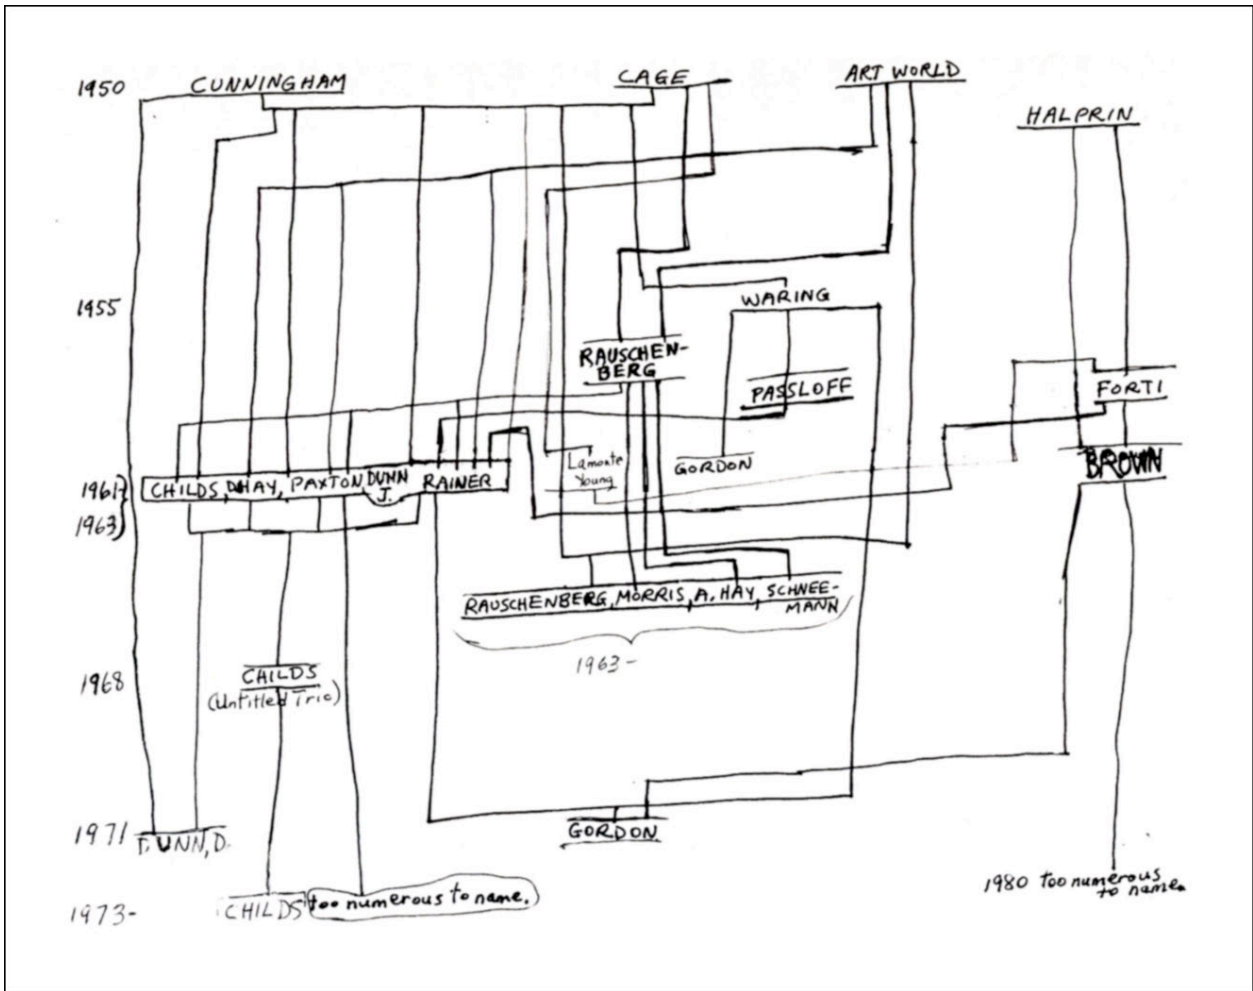 1950 CUNNINGHAM CAGE ART WORLD
HALPRIN
1955 WARING
RAUSCHEN-
BERG
PASSLOFF FORTI
Lamonte
Young
GORDON BROWN
1961-
1963
CHILDS, D. HAY, PAXTON, DUNN J. RAINER
RAUSCHENBERG, MORRIS, A. HAY, SCHNEE-
MANN
1963-
1968 CHILDS
(Untitled Trio)
1971 DUNN, D. GORDON
1973- CHILDS too numerous to name.
1980 too numerous
to name.